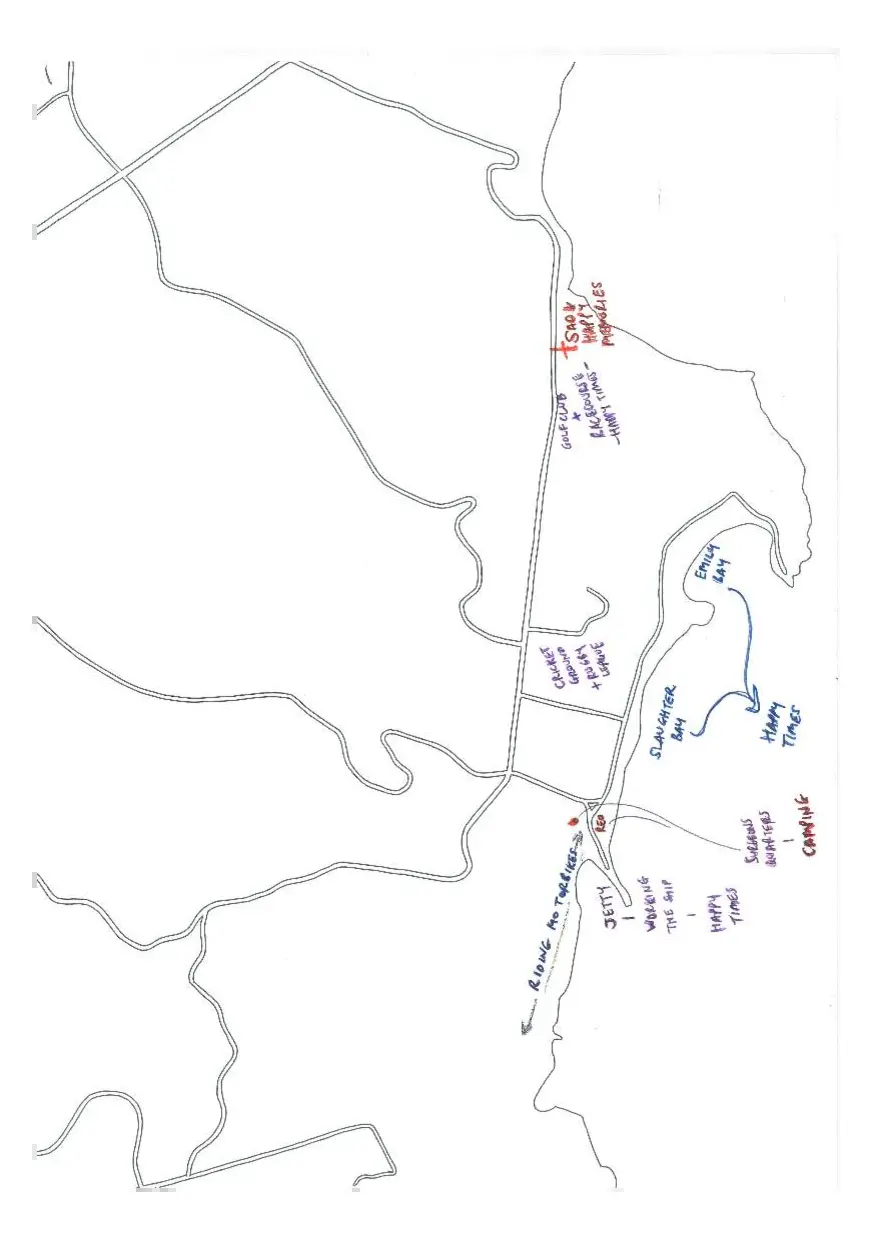 SAD &
HAPPY
MEMORIES
GOLF CLUB
+
RACECOURSE
-HAPPY TIMES-
EMILY
BAY
CRICKET
GROUND
+ RUGBY
LEAGUE
SLAUGHTER
BAY
HAPPY
TIMES
REO
SURGEONS
QUARTERS
-
CAMPING
RIDING MOTORBIKES
JETTY
-
WORKING
THE SHIP
-
HAPPY
TIMES